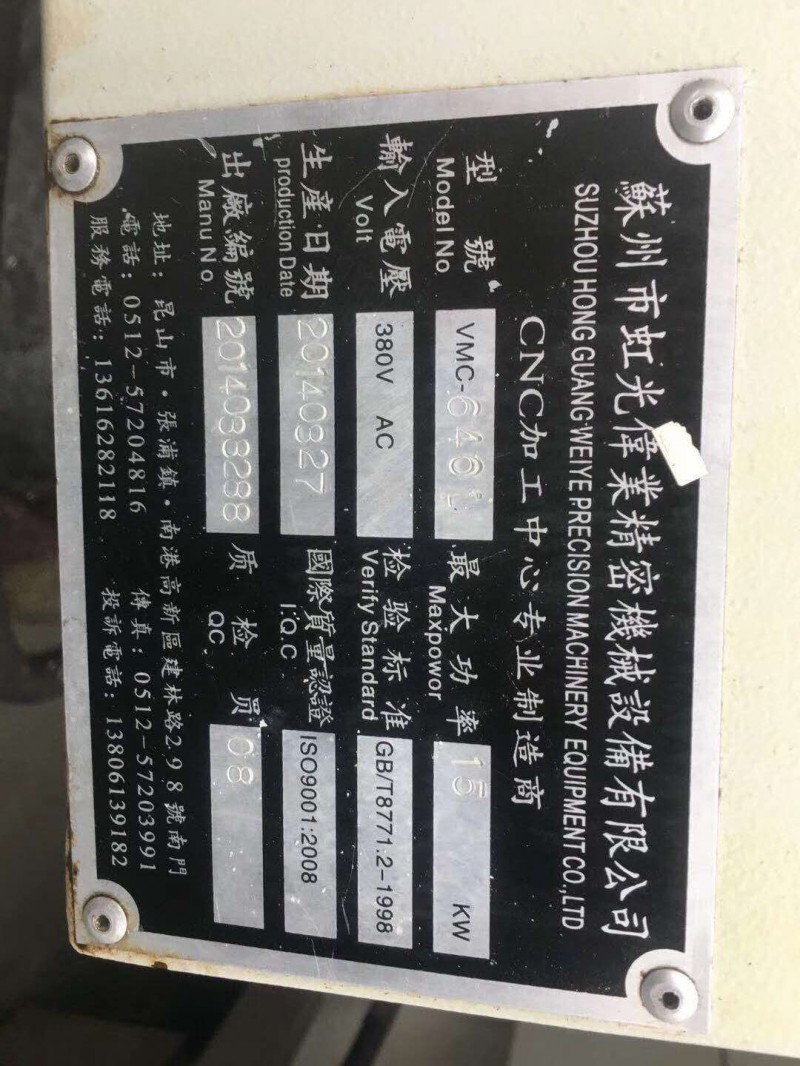 蘇州市虹光偉業精密機械設備有限公司
SUZHOU HONG GUANG WEIYE PRECISION MACHINERY EQUIPMENT CO.,LTD
CNC加工中心专业制造商
型號 VMC-640L 最大功率 15 KW
Model No Maxpower
輸入電壓 380V AC 检验标准 GB/T8771.2-1998
Volt Verify Standard
生產日期 20140327 國際質量認證 ISO9001:2008
production Date I.Q.C
出廠編號 2014033288 质检员 08
Manu No QC
地址：昆山市·張浦鎮·南港高新區建林路298號南門
電話：0512-57204816 傳真：0512-57203991
服務電話：13616282118 投訴電話：13806139182